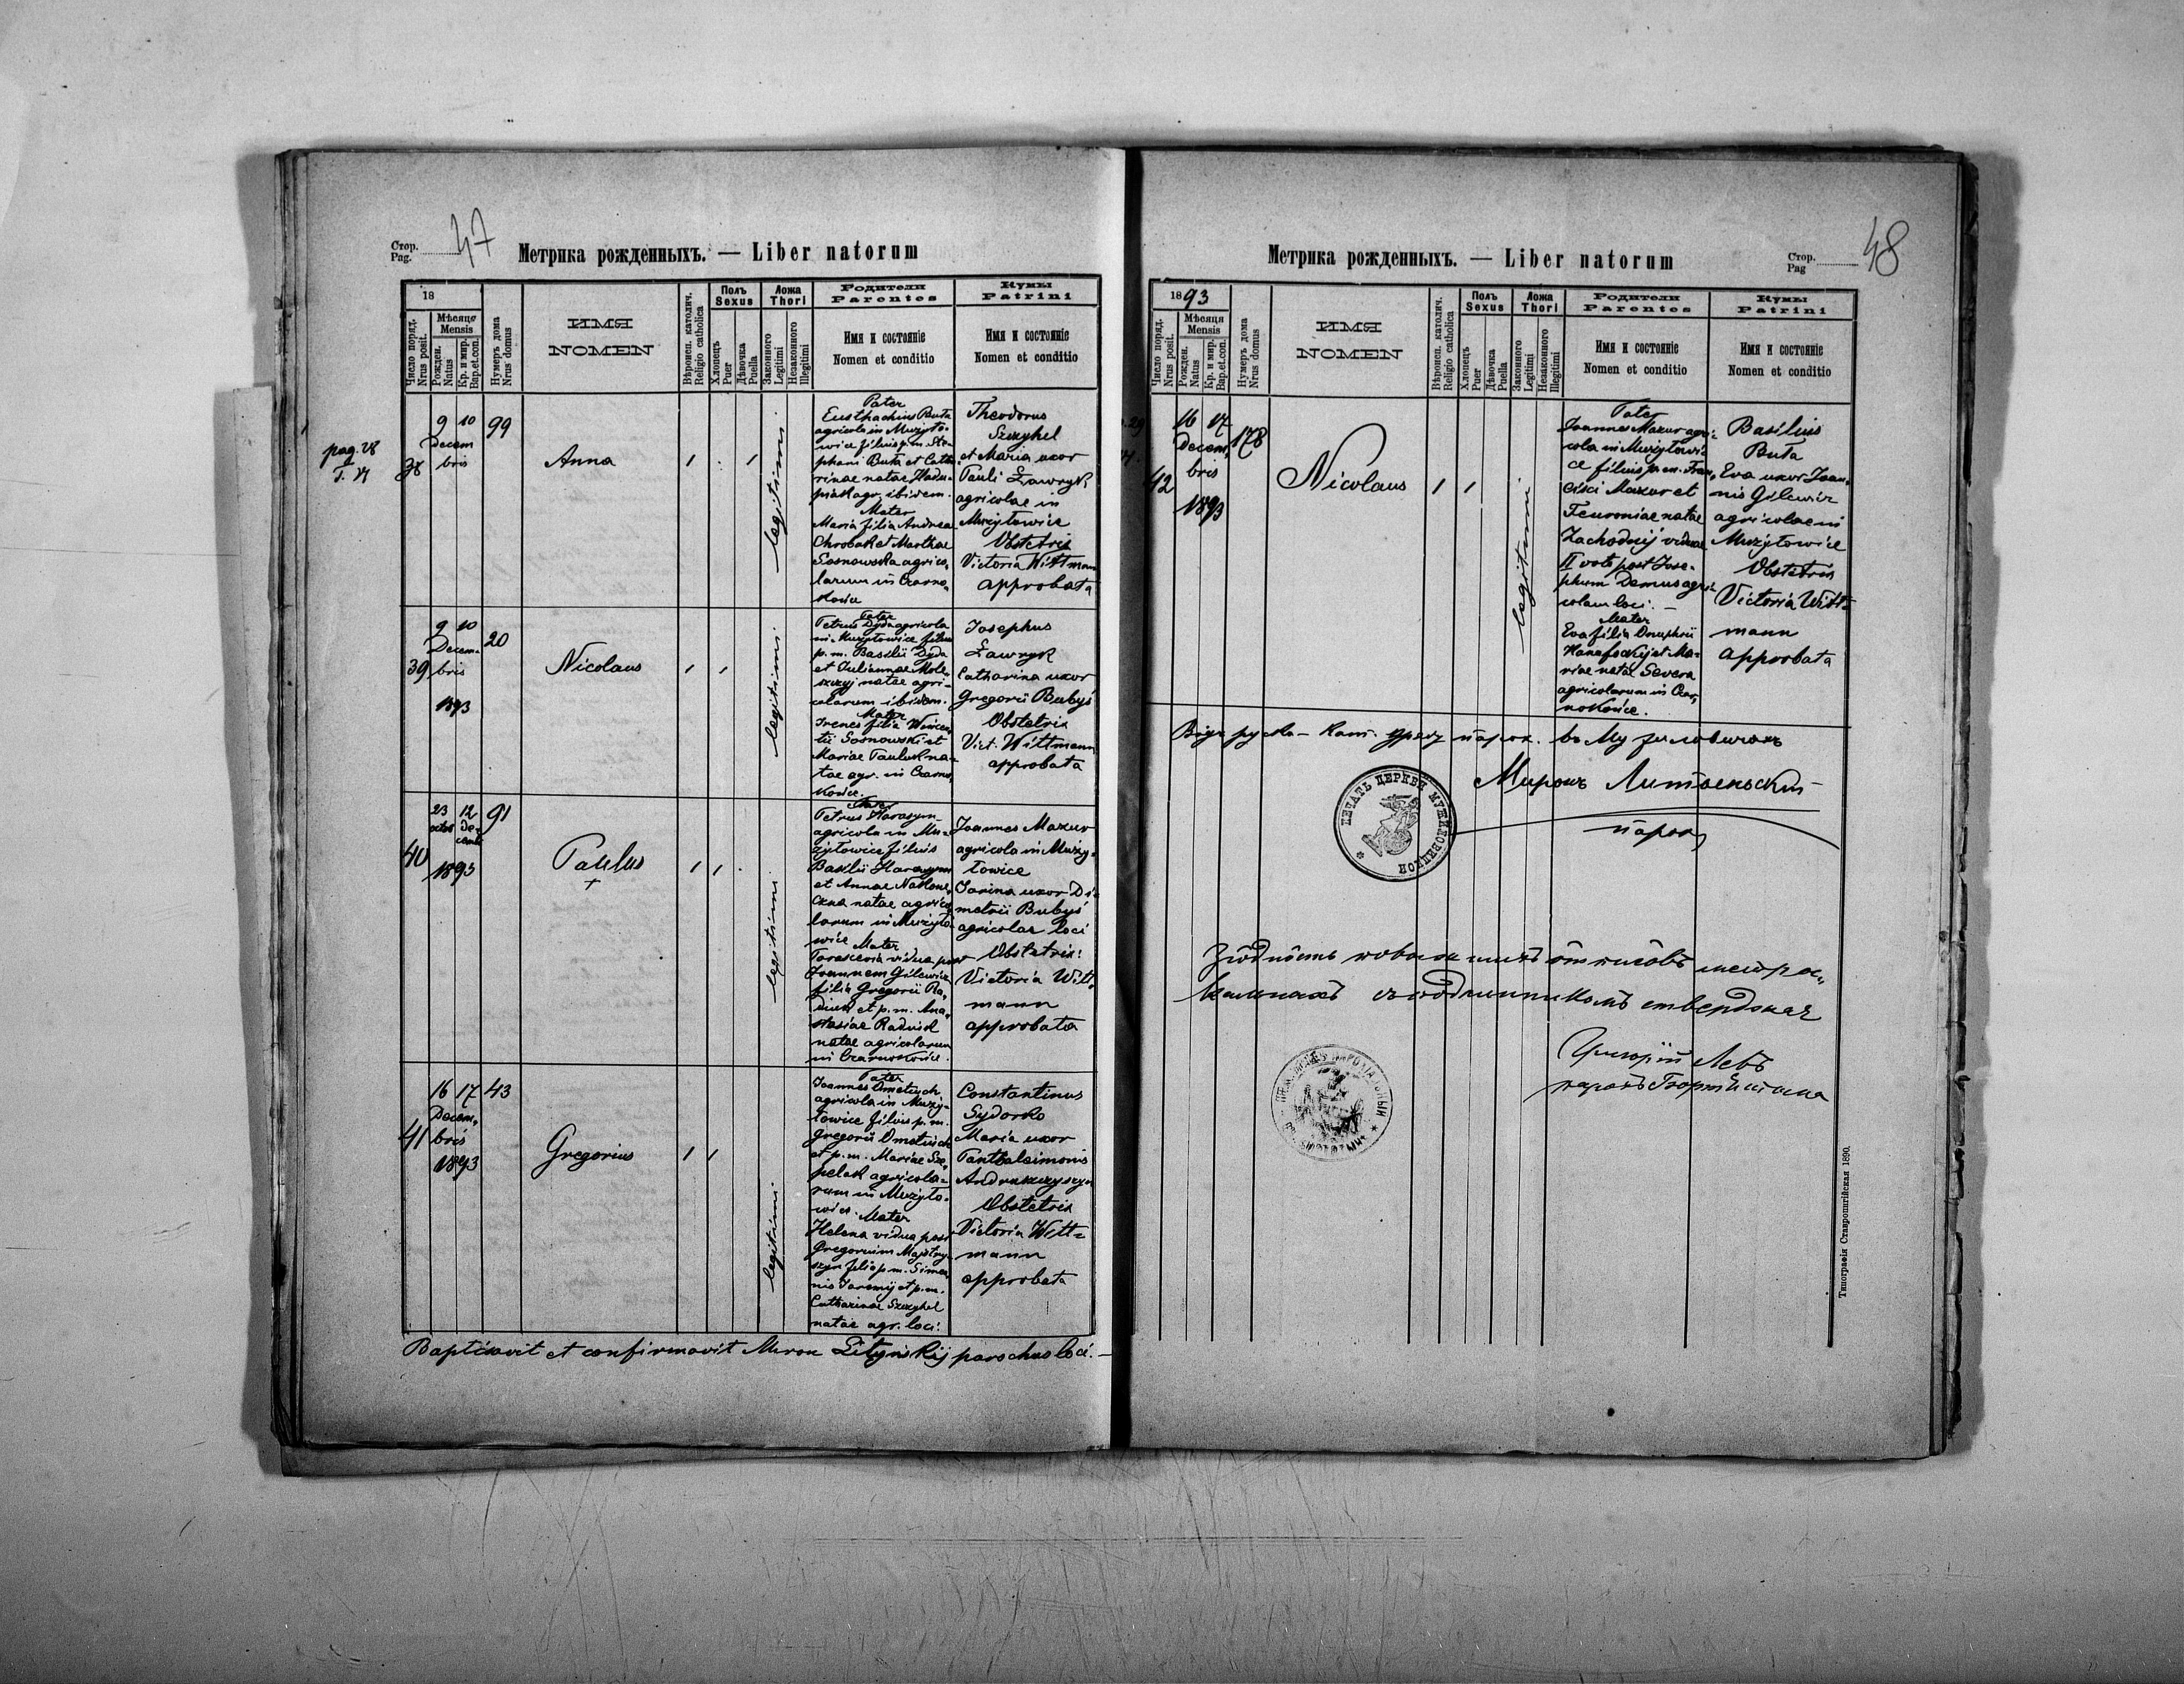 Стор. 47
Pag.
Метрика рожденныхъ. — Liber natorum
18
Число поряд. Nrus posit.
Мѣсяця
Mensis
Рожден. Natus
Кр. и мир. Bap.et.con.
Нумеръ дома Nrus domus
ИМЯ
NOMEN
Вѣроисп. католич. Religio catholica
Полъ
Sexus
Хлопецъ Puer
Дѣвочка Puella
Ложа
Thori
Законного Legitimi
Незаконного Illegitimi
Родители
Parentes
Имя и состояніе
Nomen et conditio
Кумы
Patrini
Имя и состояніе
Nomen et conditio
pag. 28
38
9 10
Decem
bris
99
Anna
1 1
legitimi
Pater
Eusthachius Buta
agricola in Mużyło-
wice filius p. m. Ste-
phani Buta et Catha-
rinae natae
agr. ibidem.
Mater
Maria filia Andreae
Chrobak et Marthae
Sosnowska agrico-
larum in Czarno-
końce
Theodorus
Szczyhel
et Maria uxor
Pauli Ławryk
agricolae in
Mużyłowice
Obstetrix
Victoria Wittmann
approbata
39
9 10
Decem-
bris
1893
20
Nicolaus
1 1
legitimi
Pater
Petrus Dyda agricola
in Mużyłowice filius
p. m. Basilii Dyda
et Juliannae Mole-
szczyj natae agri-
colarum ibidem.
Mater
Irenes filia Wincen-
tii Sosnowski et
Mariae Pauluk na-
tae agr. in Czarno-
końce.
Josephus
Ławryk
Catharina uxor
Gregorii Bubyś
Obstetrix
Vict. Wittmann
approbata
40
23 12
octob De-
cemb
1893
91
Paulus
+
1 1
legitimi
Pater
Petrus Harasym
agricola in Mu-
żyłowice filius
Basilii Harasym
et Annae
natae agrico-
larum in Mużyło-
wice Mater
Parascevia vidua post
Joannem Gilewicz
filia Gregorii Ra-
duik et p. m. Ana-
stasiae Raduik
natae agricolarum
in Czarnokońce.
Joannes Mazur
agricola in Muży-
łowice
Jarina uxor Di-
metrii Bubyś
agricolae loci
Obstetrix:
Victoria Witt-
mann
approbata
41
16 17
Decem-
bris
1893
43
Gregorius
1 1
legitimi
Pater
Joannes Dmetruch
agricola in Muży-
łowice filius p. m.
Gregorii Dmetruch
et p. m. Mariae Sze-
pelak agricola-
rum in Mużyło-
wice. Mater
Helena vidua post
Gregorium Majstry-
szyn filia p. m. Simeo-
nis Jaremij et p. m.
Catharinae Szczyhel
natae agr. loci.
Constantinus
Sydorko
Maria uxor
Panthaleimonis
Andruszczyszyn
Obstetrix
Victoria Witt-
mann
approbata
Baptisavit et confirmavit Miron Litynskij parochus loci. —
Метрика рожденныхъ. — Liber natorum
Стор. 48
Pag
1893
Число поряд. Nrus posit.
Мѣсяця
Mensis
Рожден. Natus
Кр. и мир. Bap.et.con.
Нумеръ дома Nrus domus
ИМЯ
NOMEN
Вѣроисп. католич. Religio catholica
Полъ
Sexus
Хлопецъ Puer
Дѣвочка Puella
Ложа
Thori
Законного Legitimi
Незаконного Illegitimi
Родители
Parentes
Имя и состояніе
Nomen et conditio
Кумы
Patrini
Имя и состояніе
Nomen et conditio
42
16 17
Decem-
bris
1893
178
Nicolaus
1 1
legitimi
Pater
Joannes Mazur agri-
cola in Mużyłowi-
ce filius p. m. Fran-
cisci Mazur et
Feuroniae natae
Zachodnij viduae
II voto post Jose-
phum Demus agri-
colam loci. —
Mater
Eva filia Onuphrii
Hanafockij et Ma-
riae natae Severa
agricolarum in Czar-
nokońce.
Basilius
Buta
Eva uxor Joan-
nis Gilewicz
agricolae in
Mużyłowice
Obstetrix
Victoria Witt-
mann
approbata
Видъ русько-кат. уряду парох. въ Музиловичахъ
Миронъ Литынскій
парох
ПЕЧАТЬ ЦЕРКВИ МУЖИЛОВИЦКОЙ
Згôднôсть отписôвъ метри-
кальныхъ съ подлинникомъ стверджае
Григорій Левъ
парохъ
Типографія Ставропигійская 1890.